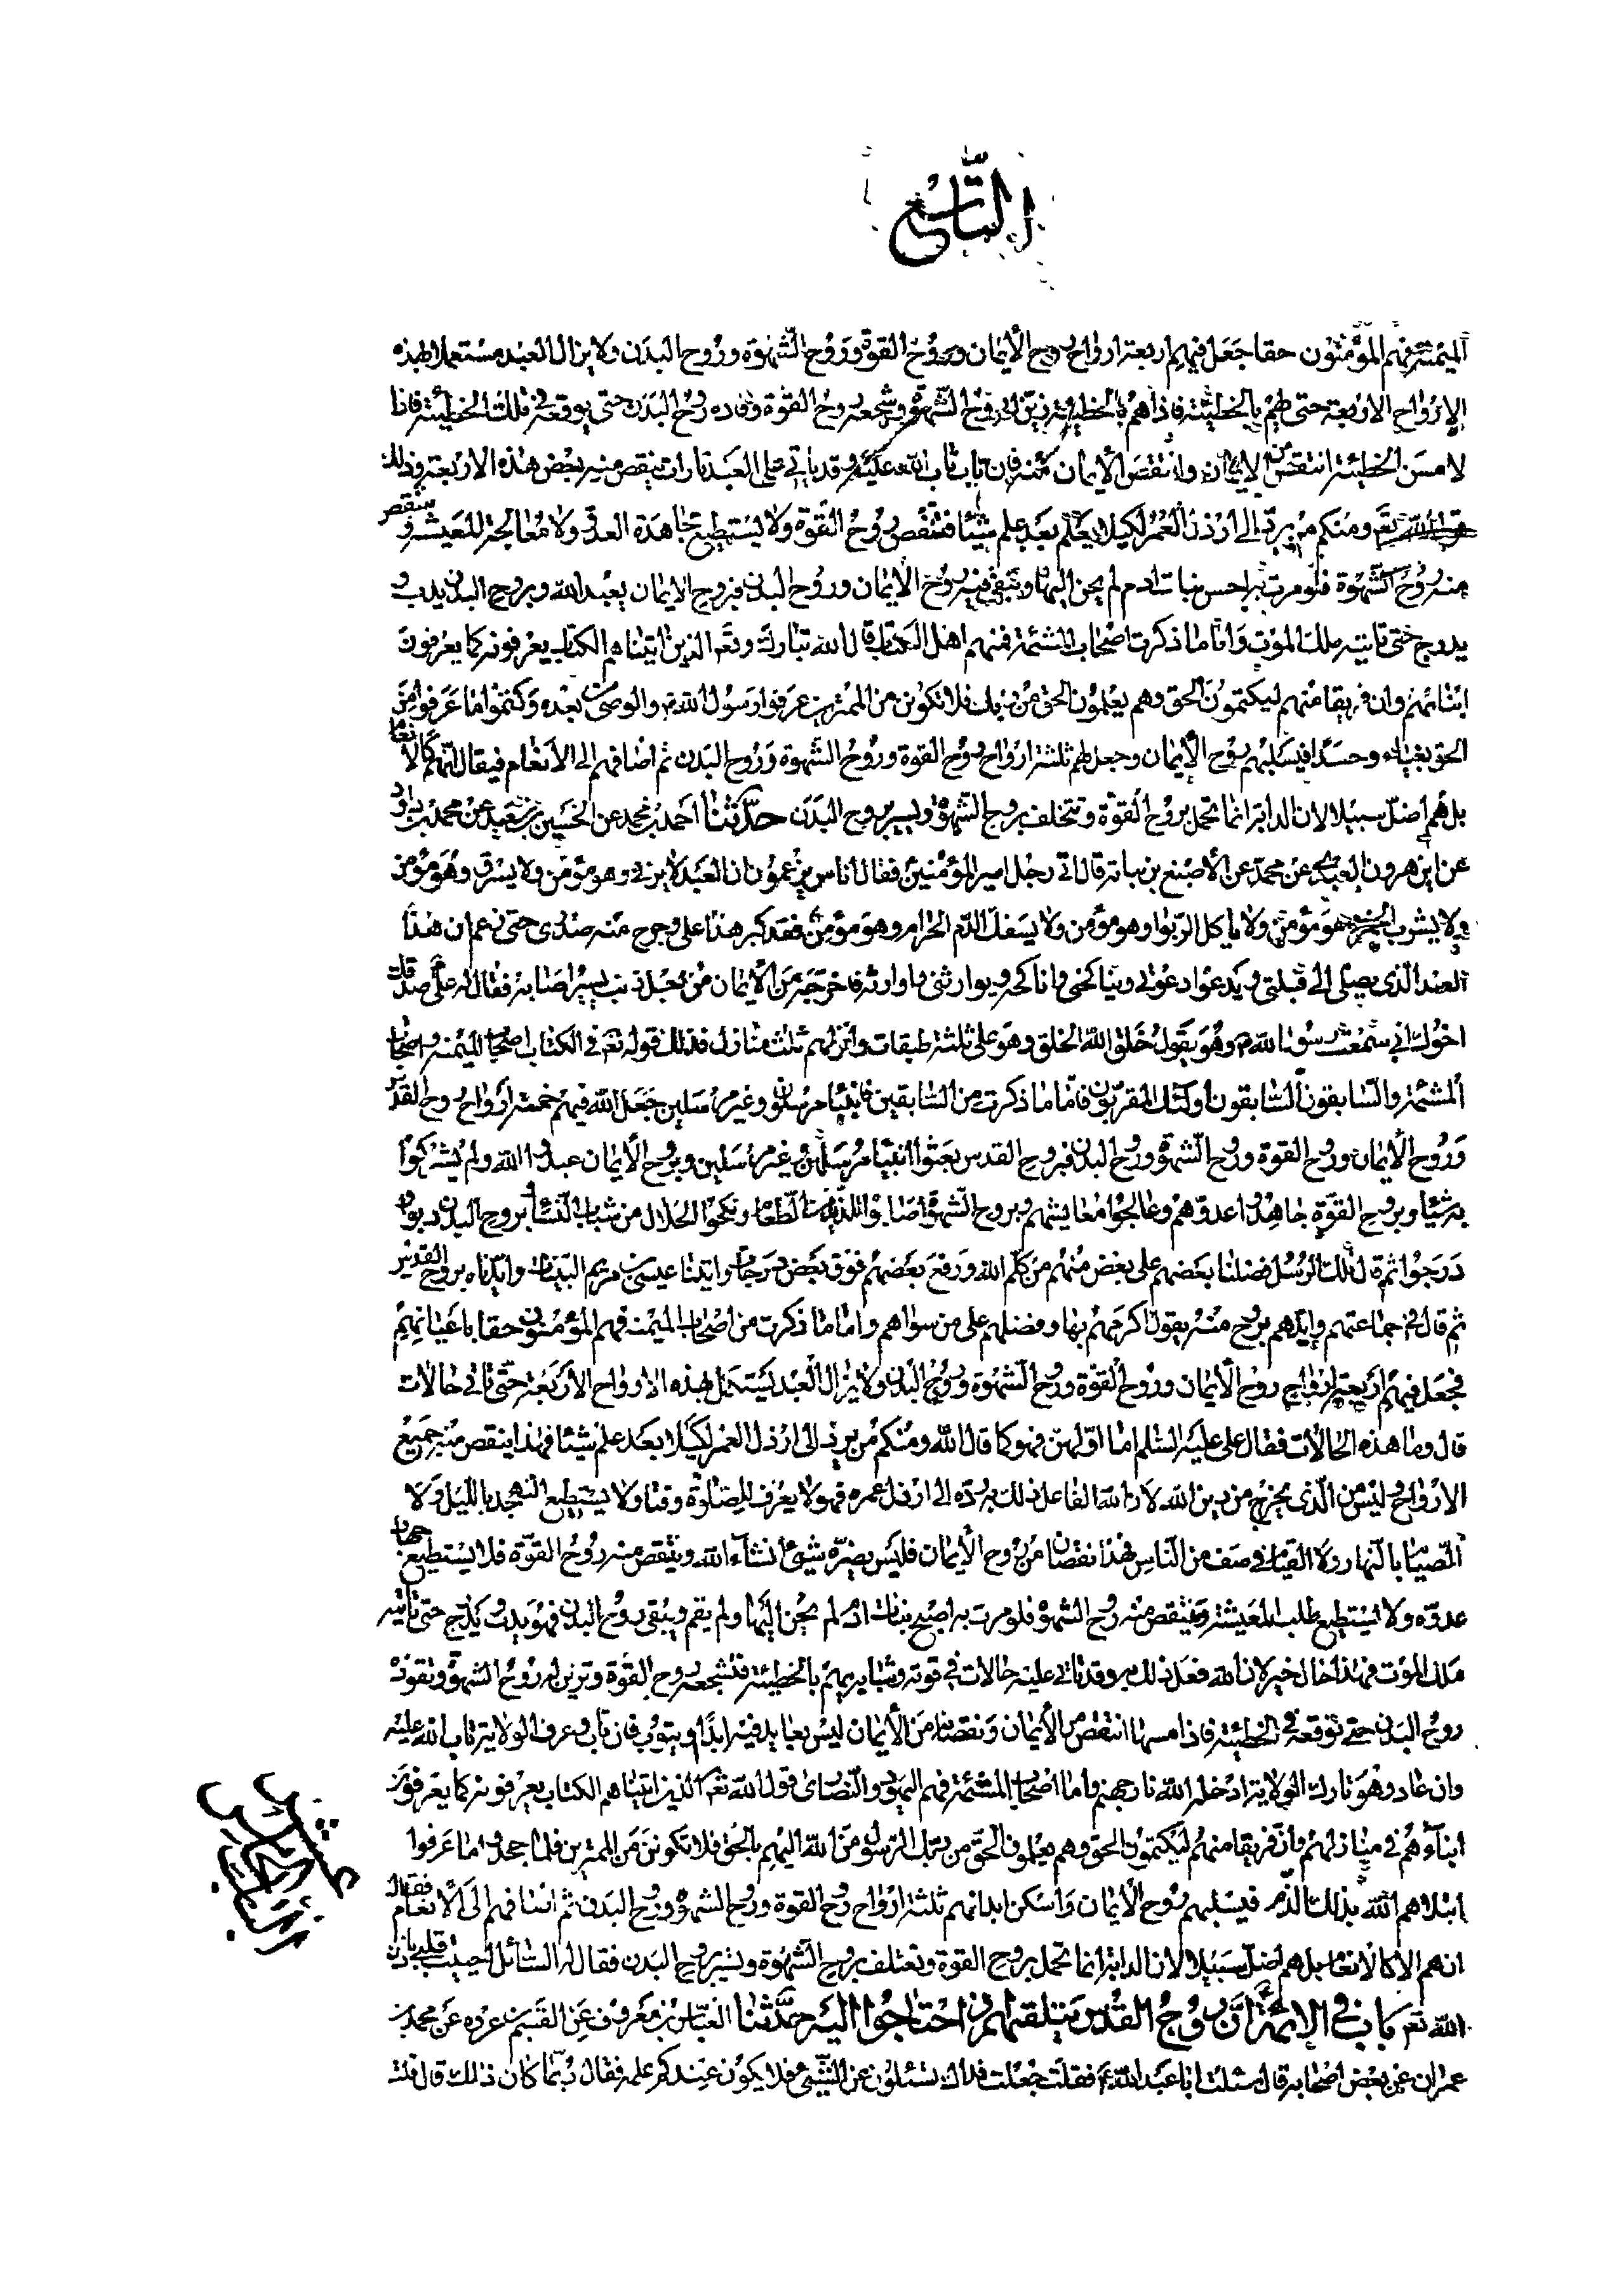 التاسع
الميمنة فهم المؤمنون حقا جعل فيهم اربعة ارواح روح الأيمان وروح القوة وروح الشهوة وروح البدن ولا يزال العبد مستعملا بهذه
الارواح الاربعة حتى يهم بالخطيئة فاذا هم بالخطيئة زين له روح الشهوة وشجعه روح القوة وقاده روح البدن حتى يوقعه في تلك الخطيئة فاذا
لامس الخطيئة انتقص من الايمان وانتقص الأيمان منه فان تاب تاب الله عليه وقد ياتي على العبد تارات ينقص منه بعض هذه الاربعة وذلك
قول الله تع ومنكم من يرد الى ارذل العمر لكيلا يعلم بعد علم شيئا فتنقص روح القوة ولا يستطيع مجاهدة العدو ولا معالجة المعيشة و تنتقص
منه روح الشهوة فلو مرت به احسن بنات ادم لم يحن اليها وتبقى فيه روح الايمان وروح البدن فبروح الايمان يعبد الله وبروح البدن يدب و
يدرج حتى تاتيه ملك الموت واما ما ذكرت اصحاب المشئمة فمنهم اهل الكتاب قال الله تبارك وتع الذين اتيناهم الكتاب يعرفونه كما يعرفون
ابنائهم وان فريقا منهم ليكتمون الحق وهم يعلمون الحق من ربك فلا تكونن من الممترين عرفوا رسول الله ص والوصي من بعده وكتموا ما عرفوا من
الحق بغيا وحسدا فيسلبهم روح الأيمان وجعل لهم ثلثة ارواح روح القوة وروح الشهوة وروح البدن ثم اضافهم الى الانعام فيقال انهم كالانعام
بل هم اضل سبيلا لان الدابة انما تحمل بروح القوة وتختلف بروح الشهوة ويسير بروح البدن حدثنا احمد بن محمد عن الحسين بن سعيد عن محمد بن داود
عن ابن هرون العبدي عن محمد عن الأصبغ بن نباته قال اتى رجل امير المؤمنين فقال اناس يزعمون ان العبد لا يزني وهو مؤمن ولا يسرق وهو مؤمن
ولا يشرب الخمر وهو مؤمن ولا ياكل الربوا وهو مؤمن ولا يسفك الدم الحرام وهو مؤمن فقد كبر هذا علي وحرج منه صدري حتى زعم ان هذا
العبد الذي يصلي الى قبلتي ويدعوا دعوتي ويناكحني واناكحه ويوارثني واوارثه فاخرجه من الأيمان من اجل ذنب يسير اصابه فقال له علي ع صدقك
اخوك اني سمعت رسول الله ص وهو يقول خلق الله الخلق وهو على ثلثة طبقات وانزلهم ثلث منازل فذلك قوله تع في الكتاب اصحاب الميمنة واصحاب
المشئمة والسابقون السابقون اولئك المقربون فاما ما ذكرت من السابقين فانبياء مرسلون وغير مرسلين جعل الله فيهم خمسة ارواح روح القدس
وروح الأيمان وروح القوة وروح الشهوة وروح البدن فبروح القدس بعثوا انبياء مرسلين وغير مرسلين وبروح الأيمان عبدوا الله ولم يشركوا
به شيئا وبروح القوة جاهدوا عدوهم وعالجوا معايشهم وبروح الشهوة اصابوا اللذيذ من الطعام ونكحوا الحلال من شباب النساء وبروح البدن دبوا و
درجوا ثم قال تلك الرسل فضلنا بعضهم على بعض منهم من كلم الله ورفع بعضهم فوق بعض درجات واتينا عيسى بن مريم البينات وايدناه بروح القدس
ثم قال في جماعتهم وايدهم بروح منه يقول اكرمهم بها وفضلهم على من سواهم واما ما ذكرت من اصحاب الميمنة فهم المؤمنون حقا باعيانهم
فجعل فيهم اربعة ارواح روح الأيمان وروح القوة وروح الشهوة وروح البدن ولا يزال العبد يستكمل بهذه الارواح الأربعة حتى تاتي حالات
قال وما هذه الحالات فقال علي عليه السلم اما اولهن فهو كما قال الله ومنكم من يرد الى ارذل العمر لكيلا يعلم بعد علم شيئا فهذا ينتقص منه جميع
الارواح وليس من الذي يخرج من دين الله لان الله الفاعل ذلك به رده الى ارذل عمره فهو لا يعرف للصلوة وقتا ولا يستطيع التهجد بالليل ولا
الصيام بالنهار ولا القيام في صف من الناس فهذا نقصان من روح الأيمان فليس يضره شيئ انشاء الله وينتقص منه روح القوة فلا يستطيع جهاد
عدوه ولا يستطيع طلب المعيشة وينتقص منه روح الشهوة فلو مرت به اصبح بنات ادم لم يحن اليها ولم يقم ويبقى روح البدن فهو يدب ويدرج حتى تاتيه
ملك الموت فهذا حال خير لان الله فعل ذلك به وقد تاتي عليه حالات في قوته وشبابه يهم بالخطيئة فتشجعه روح القوة وتزين له روح الشهوة وتقوده
روح البدن حتى توقعه في الخطيئة فاذا مسها انتقص من الأيمان ونقصانه من الأيمان ليس بعايد فيه ابدا او يتوب فان تاب وعرف الولاية تاب الله عليه
وان عاد وهو تارك الولاية ادخله الله نار جهنم واما اصحاب المشئمة فهم اليهود والنصارى قول الله تع الذين اتيناهم الكتاب يعرفونه كما يعرفون
ابناءهم في منازلهم وان فريقا منهم ليكتمون الحق وهم يعلمون الحق من ربك الرسول من الله اليهم بالحق فلا تكونن من الممترين فلما جحدوا ما عرفوا
ابتلاهم الله بذلك الذم فيسلبهم روح الأيمان واسكن ابدانهم ثلثة ارواح روح القوة وروح الشهوة وروح البدن ثم اضافهم الى الأنعام فقال
ان هم الا كالانعام بل هم اضل سبيلا لان الدابة انما تحمل بروح القوة وتعتلف بروح الشهوة وتسير بروح البدن فقال له السائل احييت قلبي باذن
الله تع باب في الائمة ان روح القدس يتلقاهم اذا احتاجوا اليه حدثنا العباس بن معروف عن القسم بن عروه عن محمد بن
عمران عن بعض اصحابه قال سئلت ابا عبد الله ع فقلت جعلت فداك تسئلون عن الشيئ فلا يكون عندكم علمه فقال ربما كان ذلك قال قلت